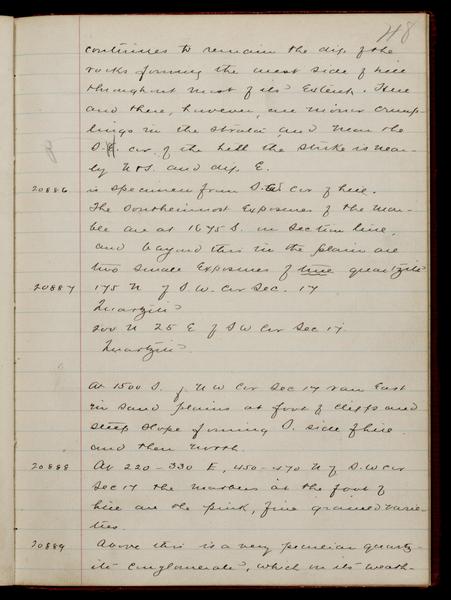 48
continues to remain the dip of the
rocks forming the west side of hill
throughout most of its extent. Here
and there, however, are minor crump-
lings in the strata and near the
S. cor. of the hill the strike is near-
ly N & S. and dip E.
20886 is specimen from S.W cor of hill.
The Southernmost Exposures of the mar-
ble are at 1675 S. on Section line,
and beyond this in the plain are
two small Exposures of quartzite
20887 175 N of S.W. Cor Sec. 17
Quartzite
200 N 25 E of S W Cor Sec 17
Quartzite
At 1500 S. of N W Cor Sec 17 ran East
in sand plains at foot of cliffs and
steep slope forming S. side of hill
and then north.
20888 At 220-330 E, 450-470 N of S.W Cor
Sec 17 the marbles at the foot of
hill are the pink, fine grained varie-
ties.
20889 Above this is a very peculiar quartz-
ite conglomerate, which on its weath-